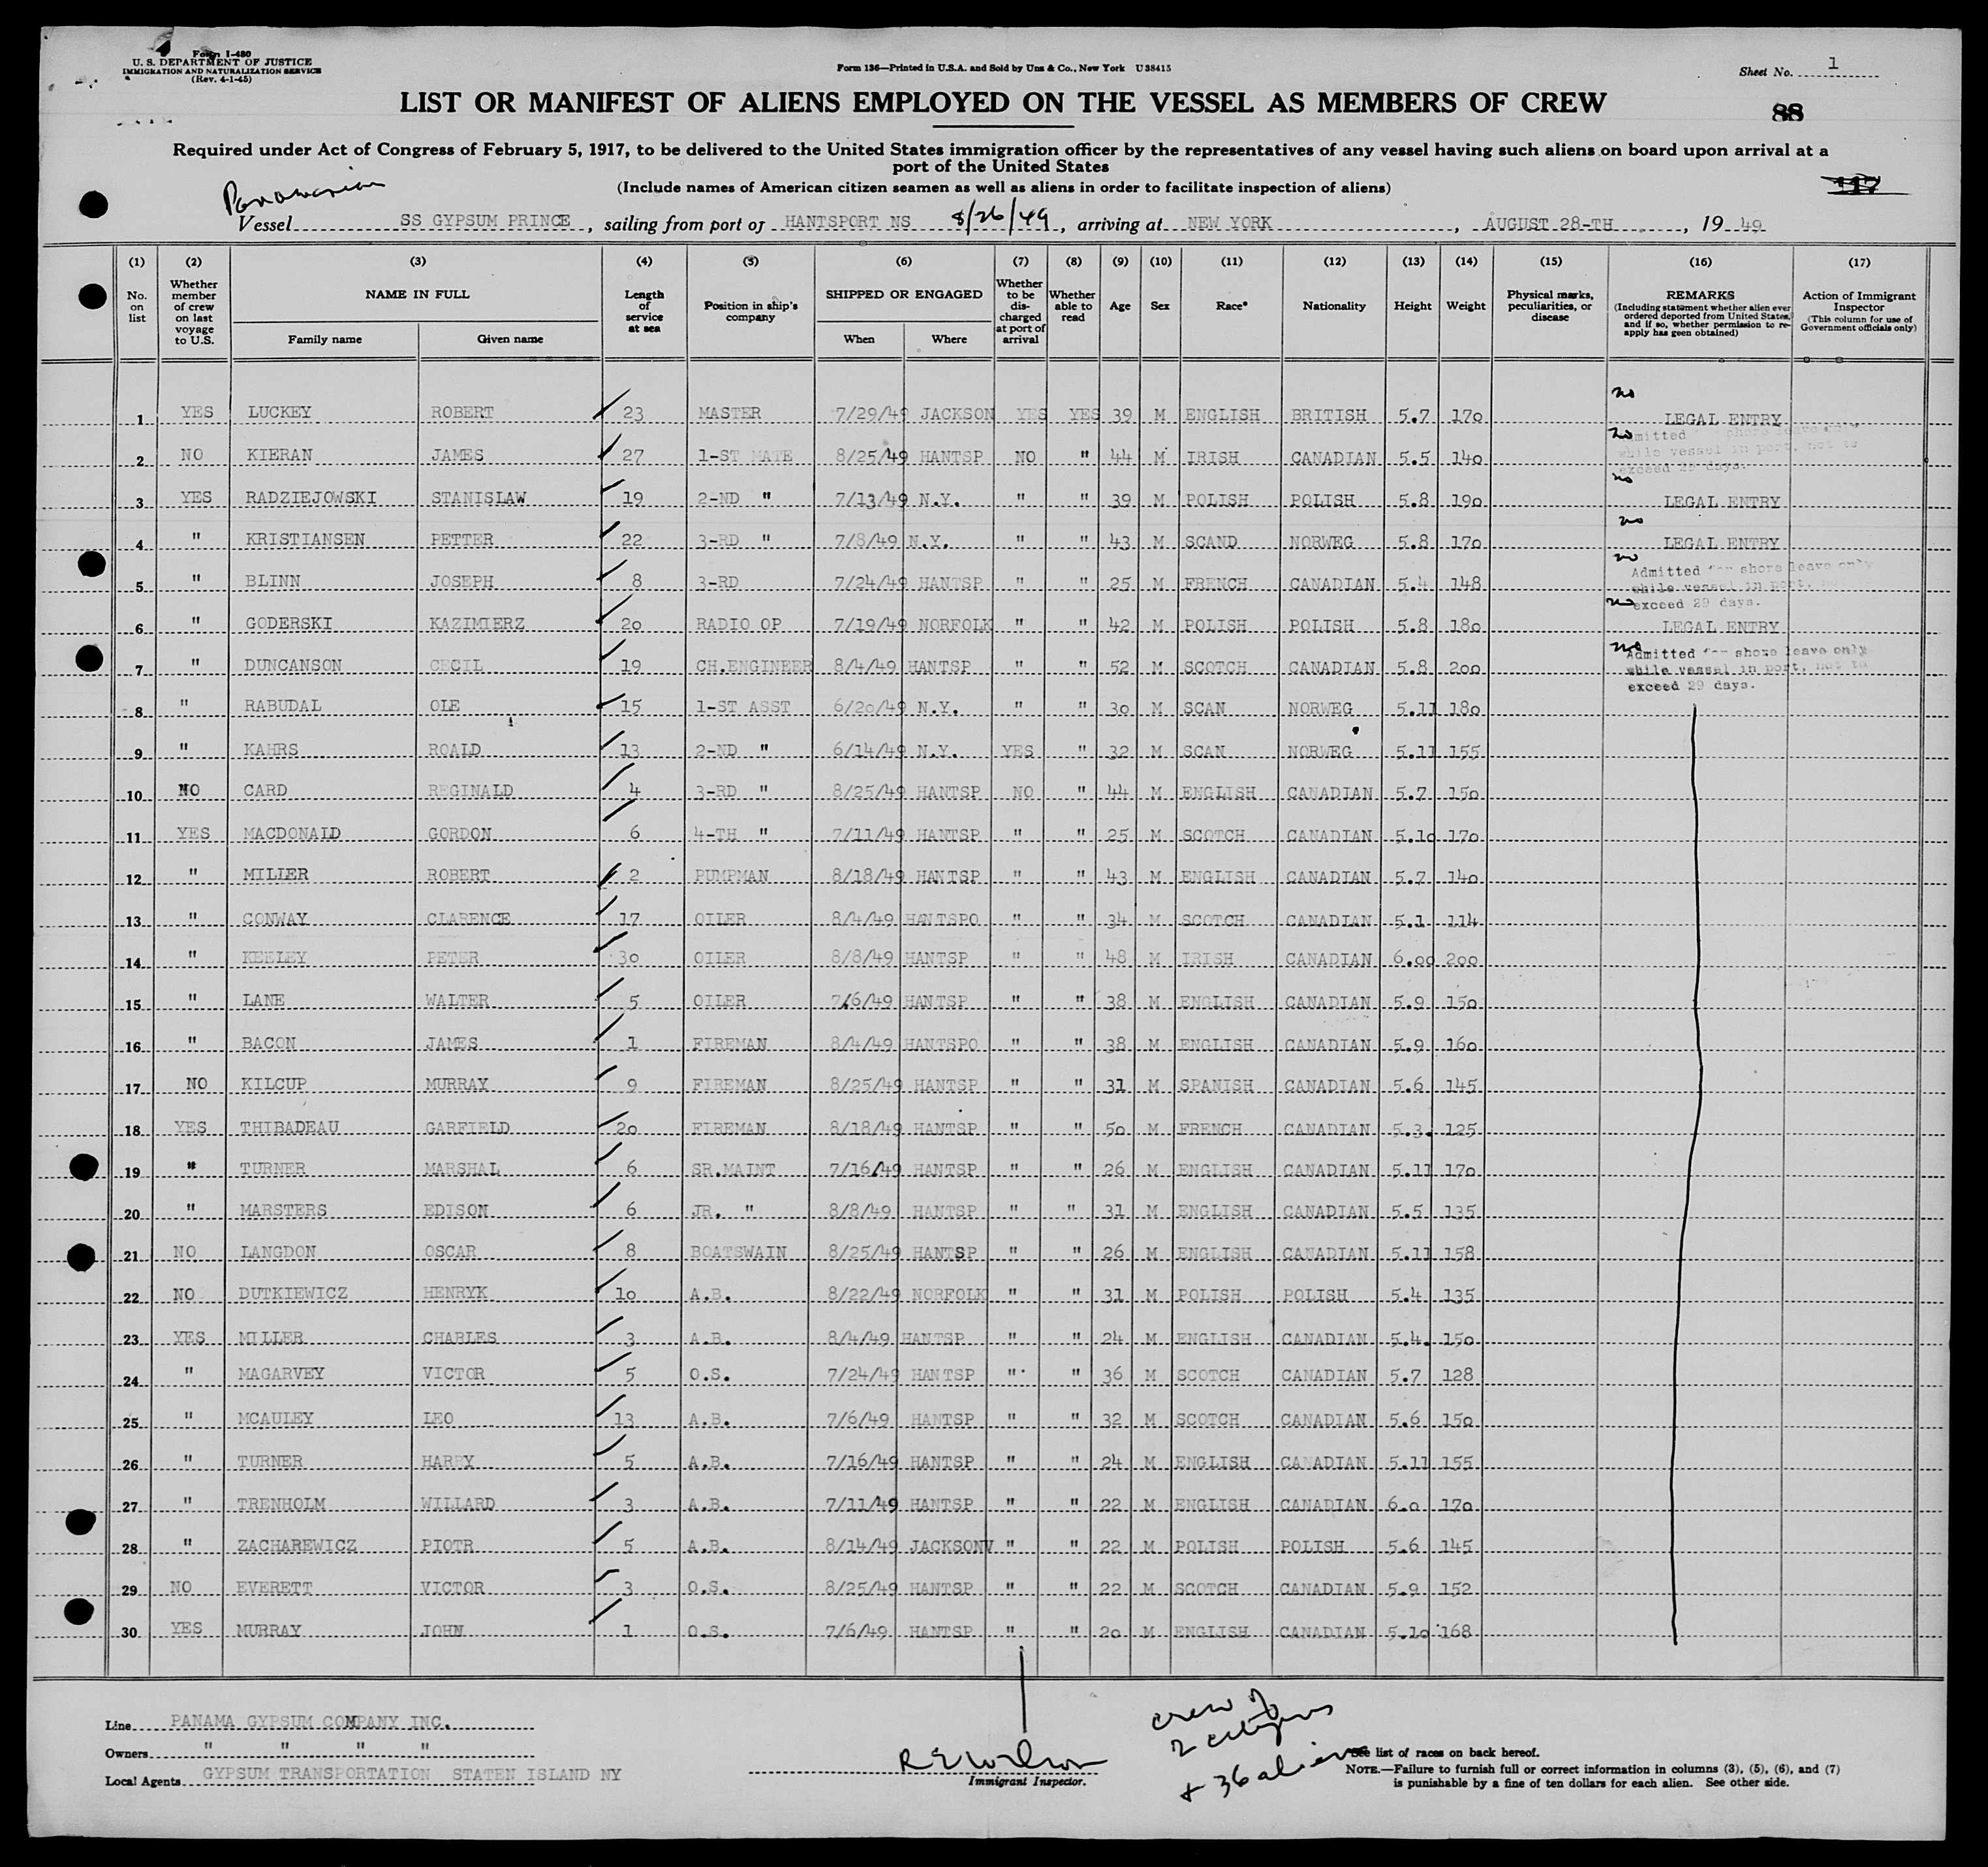 Form I-480
U. S. DEPARTMENT OF JUSTICE
IMMIGRATION AND NATURALIZATION SERVICE
(Rev. 4-1-45)
Form 136—Printed in U.S.A. and Sold by Unz & Co., New York U38415
Sheet No. 1
LIST OR MANIFEST OF ALIENS EMPLOYED ON THE VESSEL AS MEMBERS OF CREW
88
Required under Act of Congress of February 5, 1917, to be delivered to the United States immigration officer by the representatives of any vessel having such aliens on board upon arrival at a
port of the United States
(Include names of American citizen seamen as well as aliens in order to facilitate inspection of aliens)
117
Panamanian
Vessel SS GYPSUM PRINCE, sailing from port of HANTSPORT NS 8/26/49, arriving at NEW YORK, AUGUST 28-TH, 19 49
(1) (2) (3) (4) (5) (6) (7) (8) (9) (10) (11) (12) (13) (14) (15) (16) (17)
No. on list
Whether member of crew on last voyage to U.S.
NAME IN FULL
Family name Given name
Length of service at sea
Position in ship's company
SHIPPED OR ENGAGED
When Where
Whether to be discharged at port of arrival
Whether able to read
Age
Sex
Race*
Nationality
Height
Weight
Physical marks, peculiarities, or disease
REMARKS
(Including statement whether alien ever ordered deported from United States, and if so, whether permission to reapply has geen obtained)
Action of Immigrant Inspector
(This column for use of Government officials only)
1 YES LUCKEY ROBERT 23 MASTER 7/29/49 JACKSON YES YES 39 M ENGLISH BRITISH 5.7 170 no LEGAL ENTRY
2 NO KIERAN JAMES 27 1-ST MATE 8/25/49 HANTSP NO " 44 M IRISH CANADIAN 5.5 140 no Admitted for shore leave only while vessel in port, not to exceed 29 days.
3 YES RADZIEJOWSKI STANISLAW 19 2-ND " 7/13/49 N.Y. " " 39 M POLISH POLISH 5.8 190 no LEGAL ENTRY
4 " KRISTIANSEN PETTER 22 3-RD " 7/8/49 N.Y. " " 43 M SCAND NORWEG 5.8 170 no LEGAL ENTRY
5 " BLINN JOSEPH 8 3-RD 7/24/49 HANTSP " " 25 M FRENCH CANADIAN 5.4 148 no Admitted for shore leave only while vessel in port, not to exceed 29 days.
6 " GODERSKI KAZIMIERZ 20 RADIO OP 7/19/49 NORFOLK " " 42 M POLISH POLISH 5.8 180 no LEGAL ENTRY
7 " DUNCANSON CECIL 19 CH.ENGINEER 8/4/49 HANTSP " " 52 M SCOTCH CANADIAN 5.8 200 no Admitted for shore leave only while vessel in port, not to exceed 29 days.
8 " RABUDAL OLE 15 1-ST ASST 6/20/49 N.Y. " " 30 M SCAN NORWEG 5.11 180
9 " KAHRS ROALD 13 2-ND " 6/14/49 N.Y. YES " 32 M SCAN NORWEG 5.11 155
10 NO CARD REGINALD 4 3-RD " 8/25/49 HANTSP NO " 44 M ENGLISH CANADIAN 5.7 150
11 YES MACDONALD GORDON 6 4-TH " 7/11/49 HANTSP " " 25 M SCOTCH CANADIAN 5.10 170
12 " MILLER ROBERT 2 PUMPMAN 8/18/49 HANTSP " " 43 M ENGLISH CANADIAN 5.7 140
13 " CONWAY CLARENCE 17 OILER 8/4/49 HANTSPO " " 34 M SCOTCH CANADIAN 5.1 114
14 " KEELEY PETER 30 OILER 8/8/49 HANTSP " " 48 M IRISH CANADIAN 6.00 200
15 " LANE WALTER 5 OILER 7/6/49 HANTSP " " 38 M ENGLISH CANADIAN 5.9 150
16 " BACON JAMES 1 FIREMAN 8/4/49 HANTSPO " " 38 M ENGLISH CANADIAN 5.9 160
17 NO KILCUP MURRAY 9 FIREMAN 8/25/49 HANTSP " " 31 M SPANISH CANADIAN 5.6 145
18 YES THIBADEAU GARFIELD 20 FIREMAN 8/18/49 HANTSP " " 50 M FRENCH CANADIAN 5.3. 125
19 " TURNER MARSHAL 6 SR.MAINT 7/16/49 HANTSP " " 26 M ENGLISH CANADIAN 5.11 170
20 " MARSTERS EDISON 6 JR. " 8/8/49 HANTSP " " 31 M ENGLISH CANADIAN 5.5 135
21 NO LANGDON OSCAR 8 BOATSWAIN 8/25/49 HANTSP " " 26 M ENGLISH CANADIAN 5.11 158
22 NO DUTKIEWICZ HENRYK 10 A.B. 8/22/49 NORFOLK " " 31 M POLISH POLISH 5.4 135
23 YES MILLER CHARLES 3 A.B. 8/4/49 HANTSP " " 24 M ENGLISH CANADIAN 5.4. 150
24 " MAGARVEY VICTOR 5 O.S. 7/24/49 HANTSP " " 36 M SCOTCH CANADIAN 5.7 128
25 " MCAULEY LEO 13 A.B. 7/6/49 HANTSP " " 32 M SCOTCH CANADIAN 5.6 150
26 " TURNER HARRY 5 A.B. 7/16/49 HANTSP " " 24 M ENGLISH CANADIAN 5.11 155
27 " TRENHOLM WILLARD 3 A.B. 7/11/49 HANTSP " " 22 M ENGLISH CANADIAN 6.0 170
28 " ZACHAREWICZ PIOTR 5 A.B. 8/14/49 JACKSONV " " 22 M POLISH POLISH 5.6 145
29 NO EVERETT VICTOR 3 O.S. 8/25/49 HANTSP " " 22 M SCOTCH CANADIAN 5.9 152
30 YES MURRAY JOHN 1 O.S. 7/6/49 HANTSP " " 20 M ENGLISH CANADIAN 5.10 168
Line PANAMA GYPSUM COMPANY INC.
Owners " " " "
Local Agents GYPSUM TRANSPORTATION STATEN ISLAND NY
R E Wilson
Immigrant Inspector.
crew of
2 citizens
+ 36 aliens
See list of races on back hereof.
NOTE.—Failure to furnish full or correct information in columns (3), (5), (6), and (7)
is punishable by a fine of ten dollars for each alien. See other side.